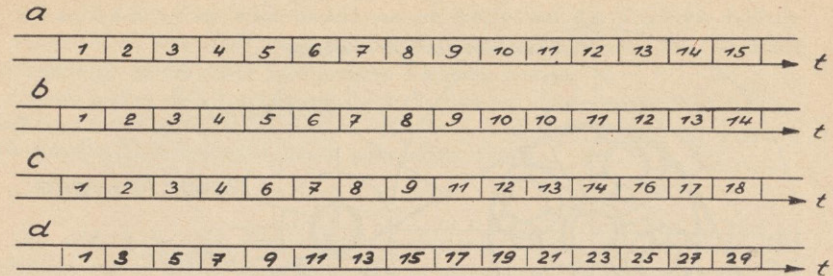 a
1 2 3 4 5 6 7 8 9 10 11 12 13 14 15
t
b
1 2 3 4 5 6 7 8 9 10 10 11 12 13 14
t
c
1 2 3 4 6 7 8 9 11 12 13 14 16 17 18
t
d
1 3 5 7 9 11 13 15 17 19 21 23 25 27 29
t